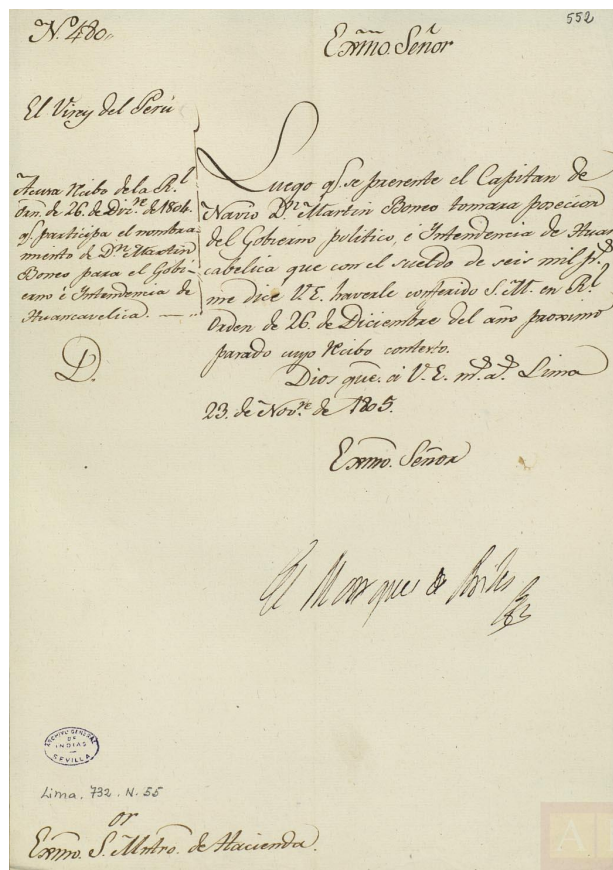 552
N.º 480.
Exmo. Señor
El Virey del Perú
Acusa recibo de la R.l
orn. de 26. de Dic.re de 1804.
q.e participa el nombra-
miento de D.n Martin
Boneo para el Gobi-
erno é Intendencia de
Huancavelica.
D.
Luego q.e se presente el Capitan de
Navio D.n Martin Boneo tomara posecion
del Gobierno politico, e Intendencia de Huan
cabelica que con el sueldo de seis mil p.s
me dice V.E. haverle conferido S.M. en R.l
Orden de 26. de Diciembre del año proximo
pasado cuyo recibo contexto.
Dios gue. á V.E. m.s a.s Lima
23. de Nov.re de 1805.
Exmo. Señor
El Marques de Aviles
ARCHIVO GENERAL
DE
INDIAS
SEVILLA
Lima. 732. N. 55
or
Exmo. S. Mntro. de Hacienda.
A